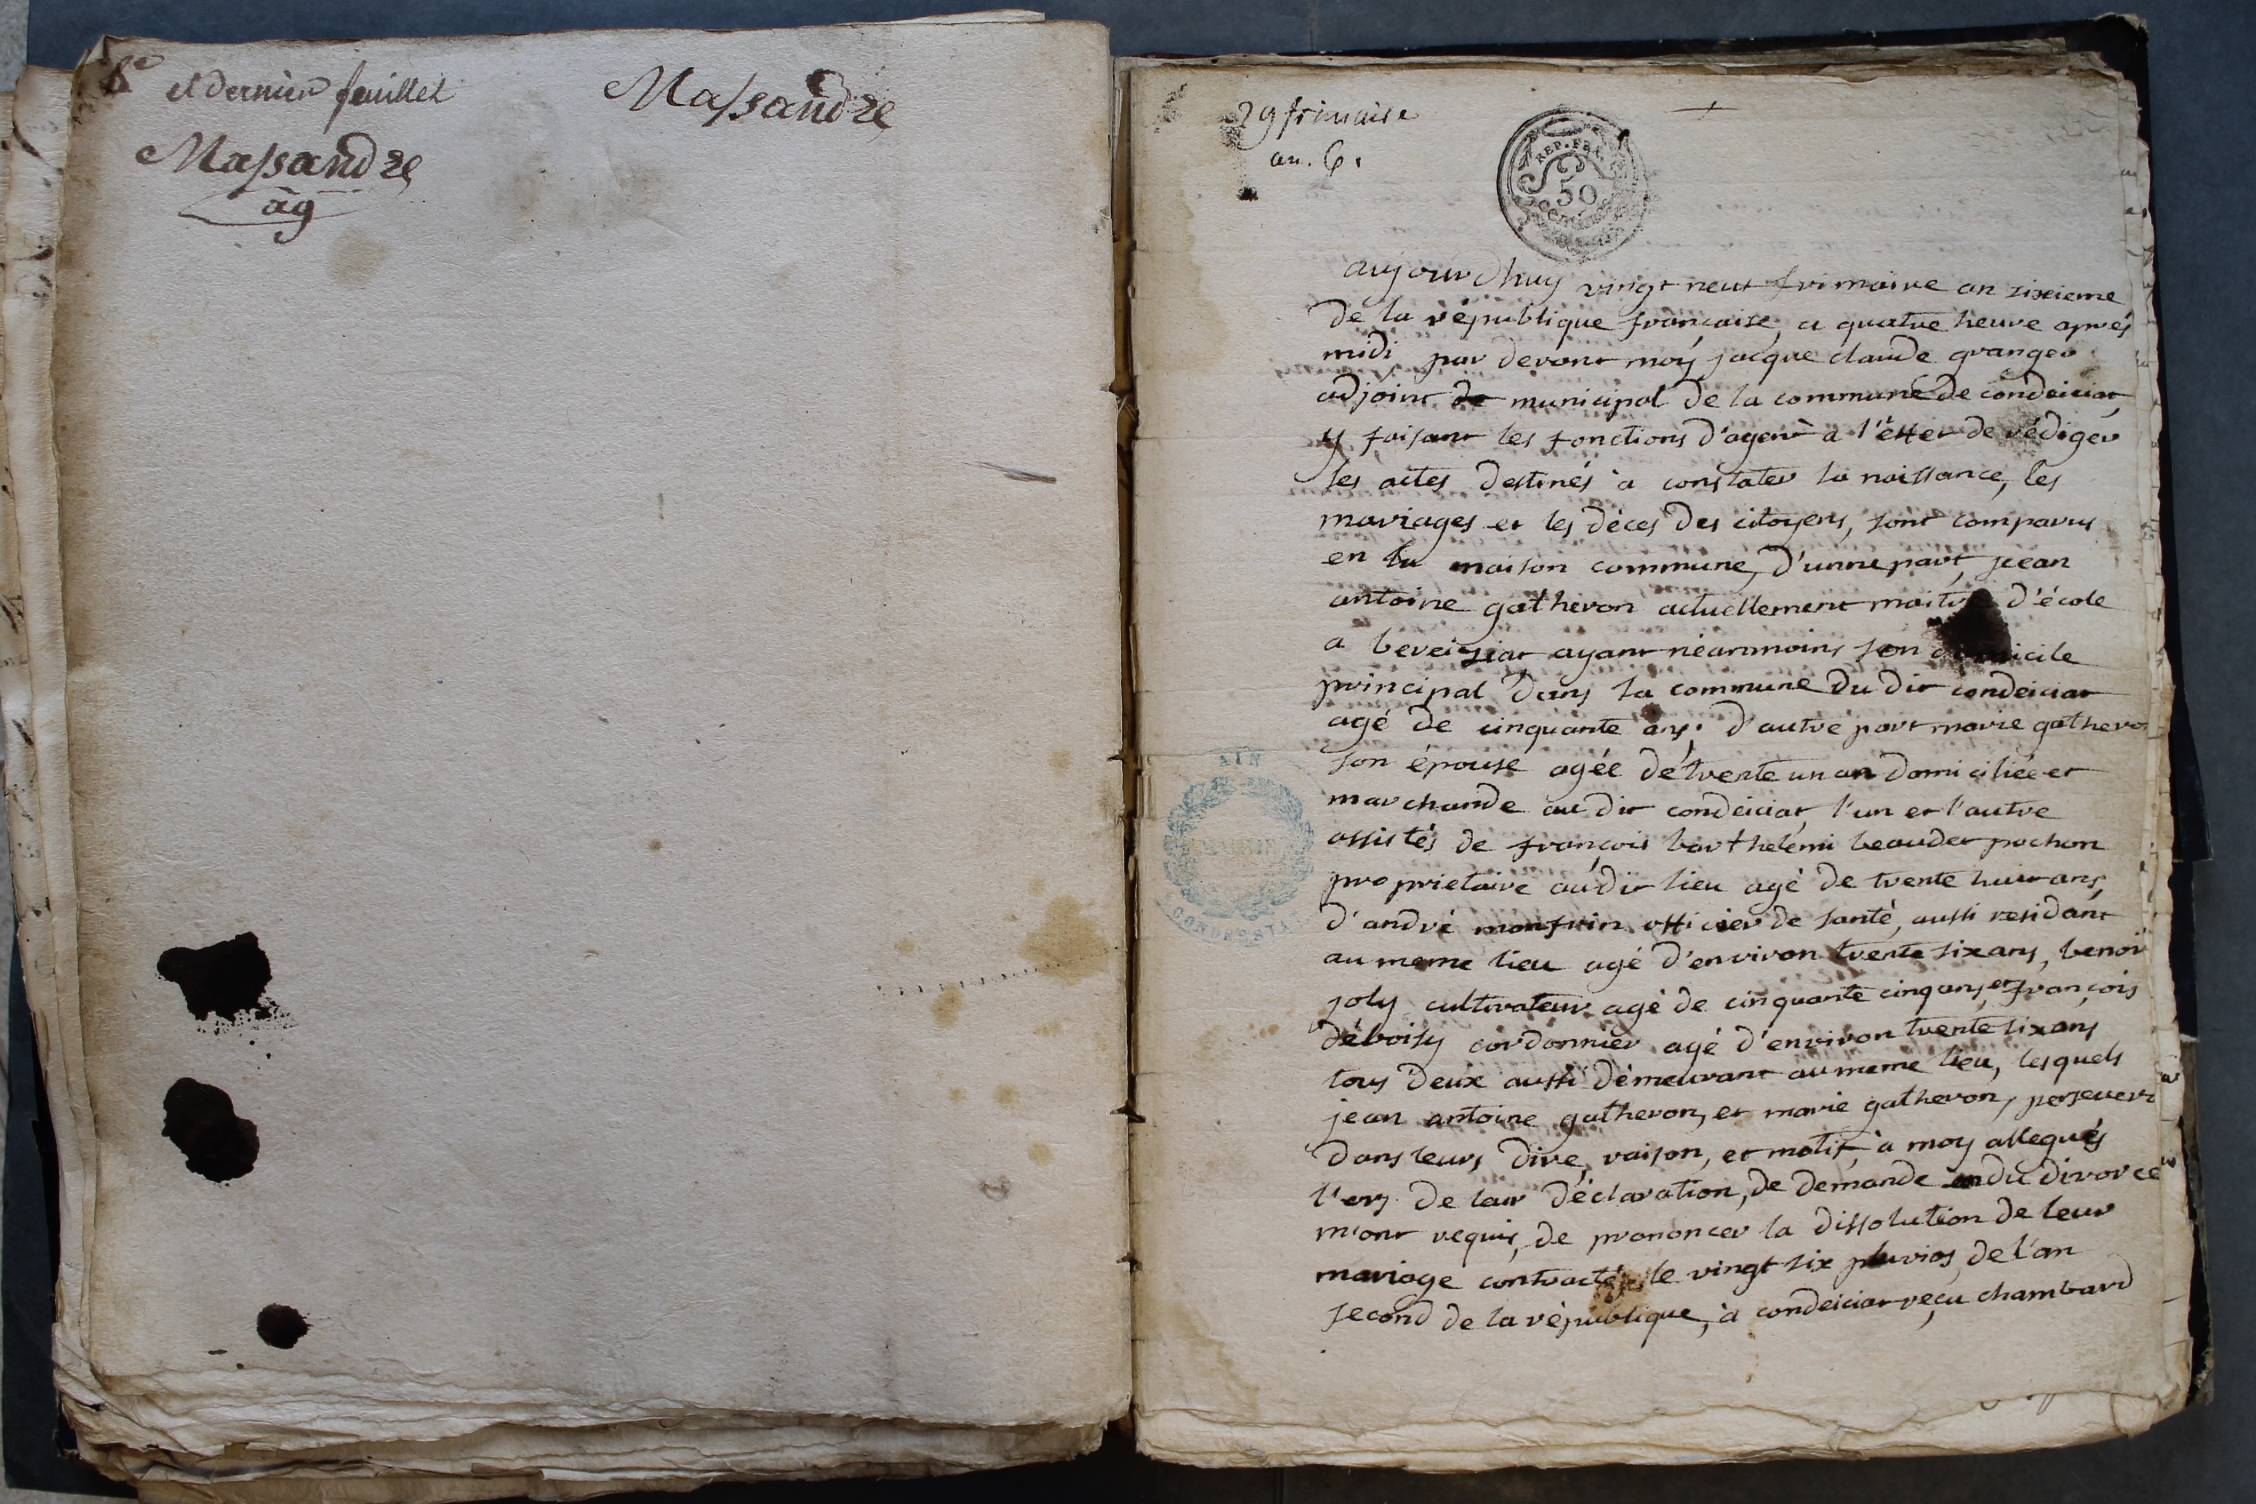 8e et dernier feuillet
Massandre
Massandre
ag
29 frimaire
an. 6.
REP. FRA.
50
CENTIMES
aujourdhuy vingt neuf frimaire an sixieme
de la république francaise, a quatre heure aprés
midi par devant moy jacque claude granger
adjoint municipal de la commune de condeiciat
y faisant les fonctions d'agent à l'éffet de rédiger
les actes destinés à constater la naissance, les
mariages et les déces des citoyens, sont comparus
en la maison commune, d'unne part, jean
antoine gatheron actuellement maitre d'école
a beveiziat ayant néanmoins son domicile
principal dans la commune du dit condeiciat
agé de cinquante ans; d'autre part marie gatheron
son épouse agée de trente un an domiciliée et
marchande au dit condeiciat, l'un et l'autre
assistés de françois barthélémi beaudet pochon
proprietaire au dit lieu agé de trente huit ans,
d'andré monfrin officier de santé, aussi residant
au meme lieu agé d'environ trente six ans, benoit
joly cultivateur agé de cinquante cinq ans, et françois
déboisy cordonnier agé d'environ trente six ans
tous deux aussi démeurant au meme lieu, lesquels
jean antoine gatheron, et marie gatheron, persevere
dans leurs dire, raison, et motif, à moy allequés
l'ors de leur déclaration, de demande du divorce
m'ont requis, de prononcer la dissolution de leur
mariage contracté, le vingt six pluvios, de l'an
second de la république, à condeiciat reçu chambard
AIN